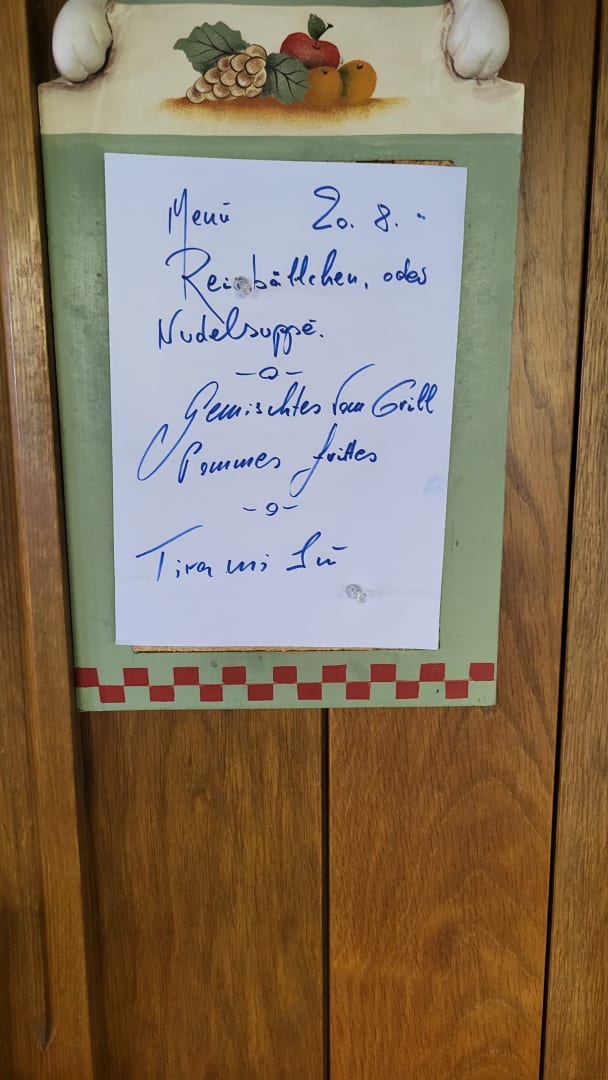 Menü 20. 8. -
Reisbällchen, oder
Nudelsuppe.
-o-
Gemischtes vom Grill
Pommes frittes
-o-
Tira mi Sù